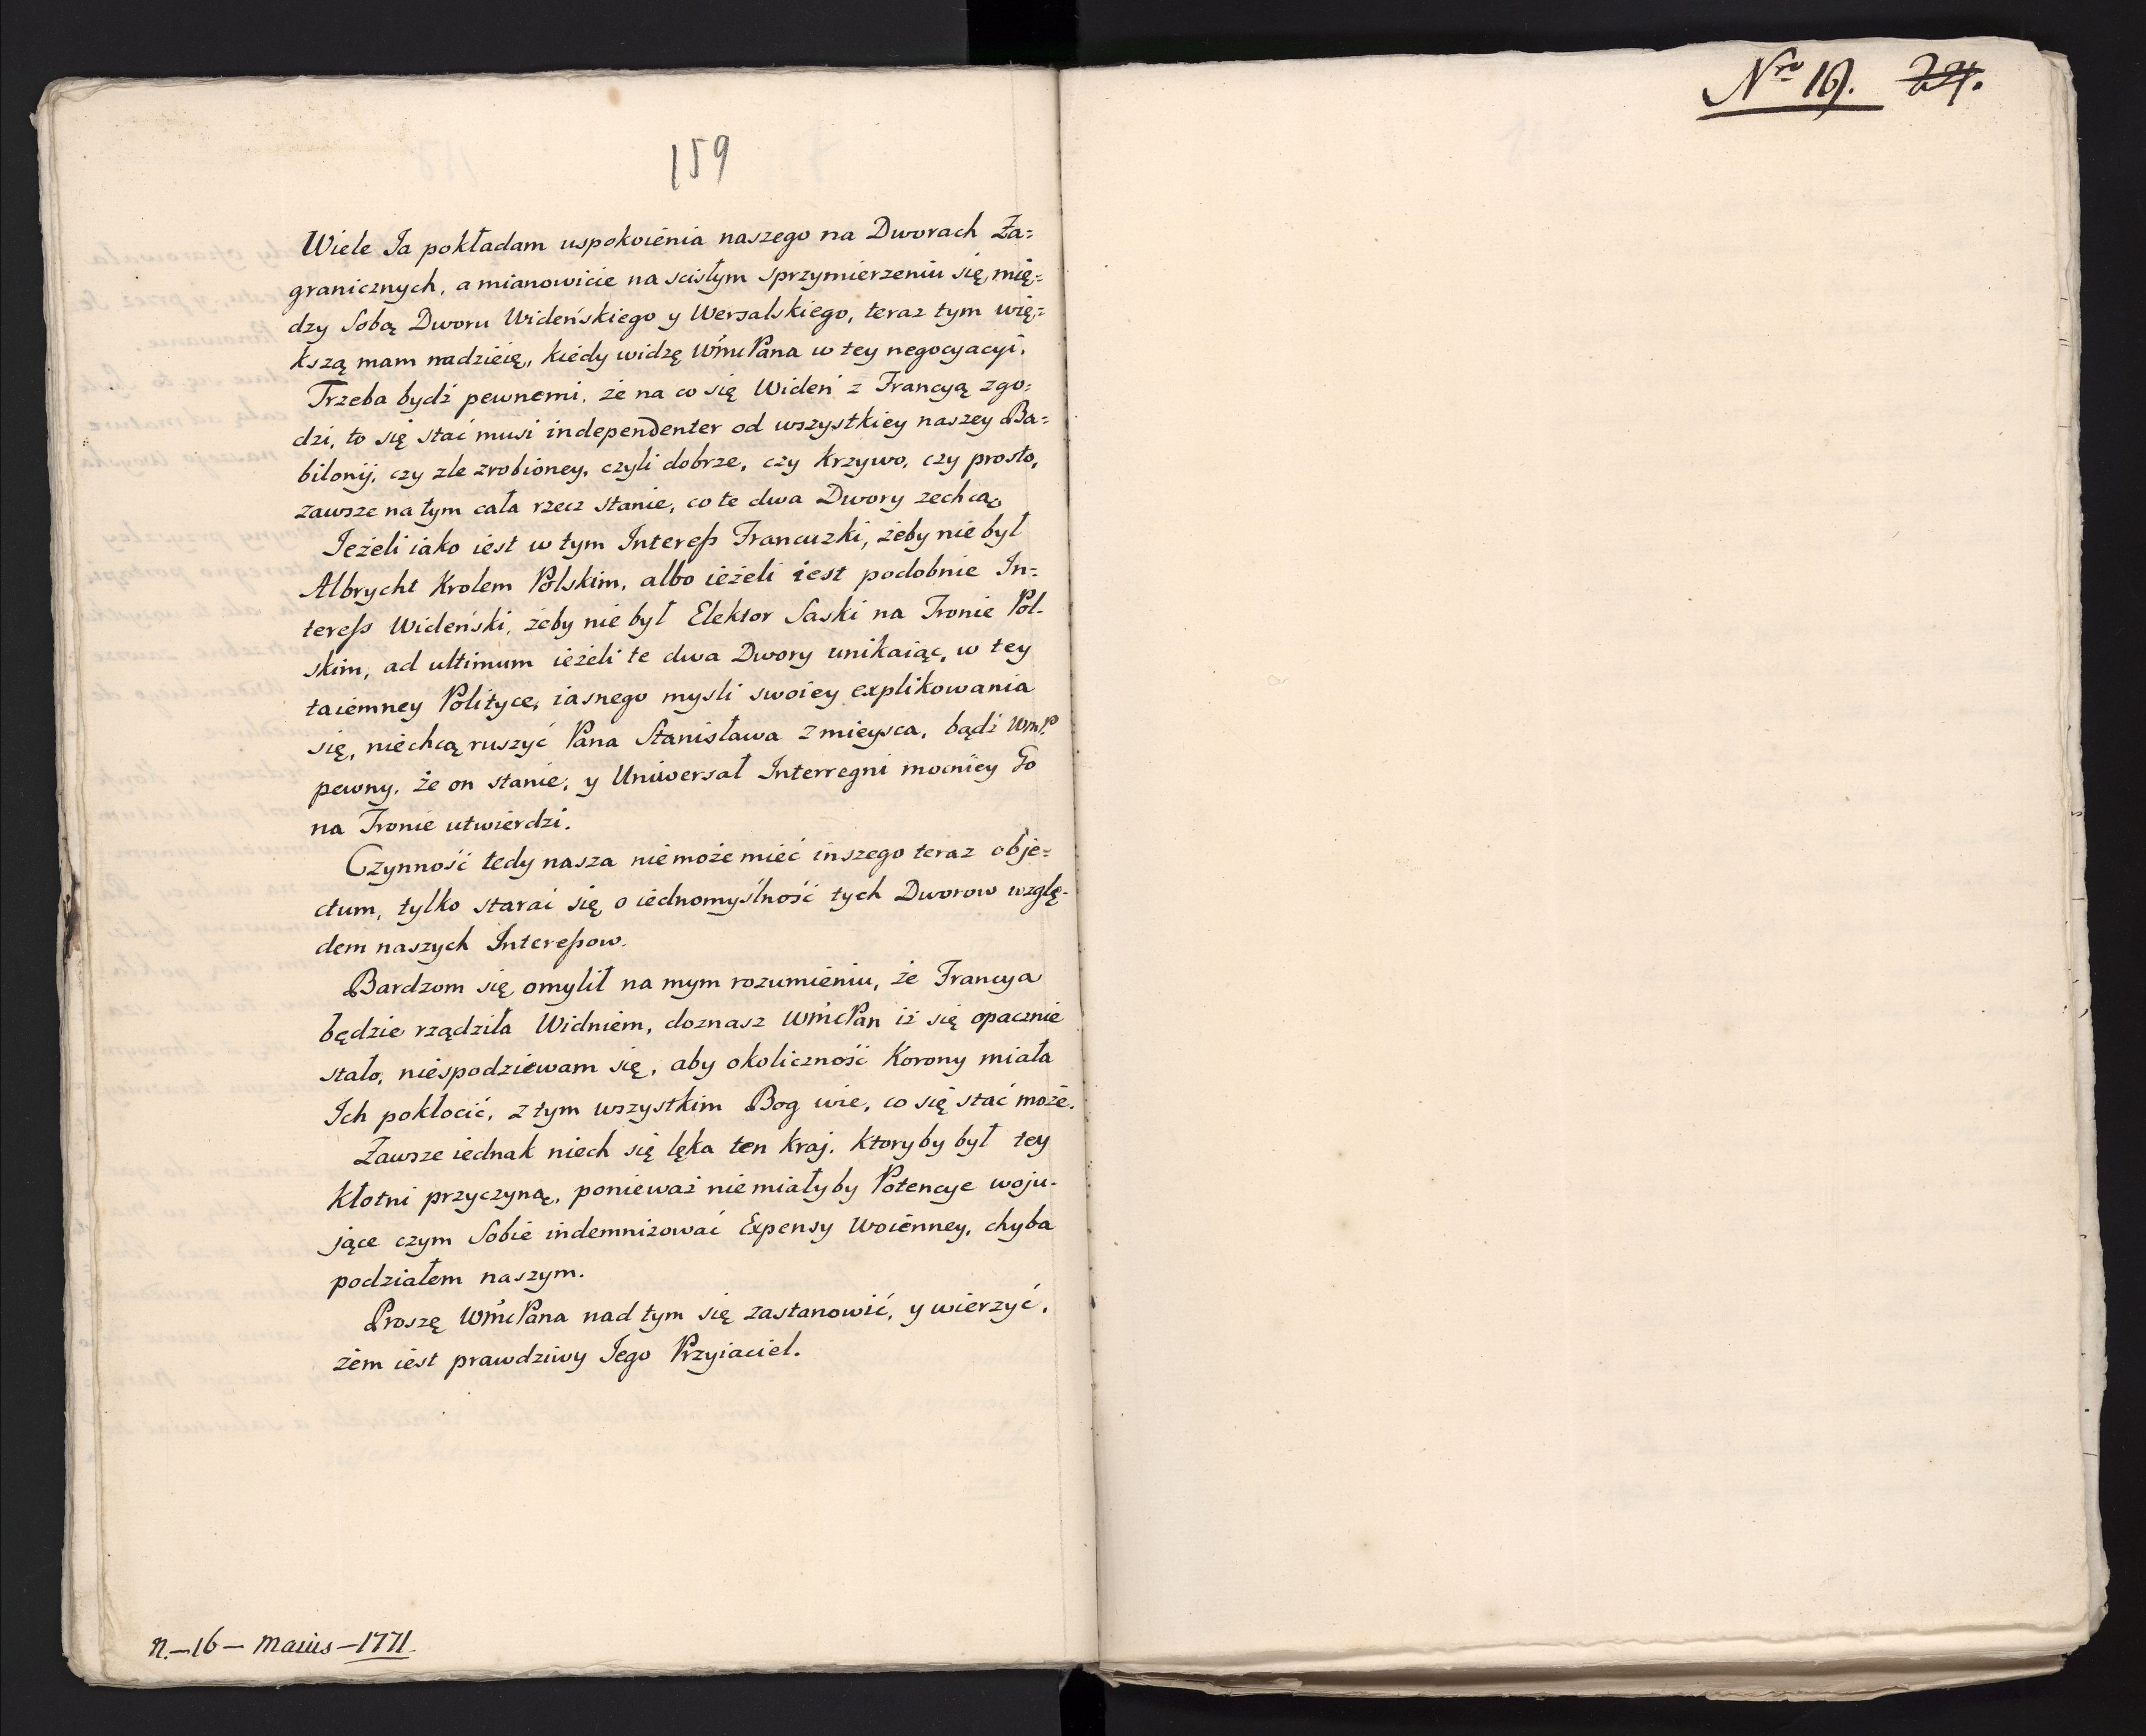 159
Wiele Ja pokładam uspokoienia naszego na Dworach Za=
granicznych, a mianowicie na scisłym sprzymierzeniu się, mię=
dzy Sobą Dworu Wideńskiego y Wersalskiego, teraz tym wię=
kszą mam nadzieię, kiedy widzę WmcPana w tey negocyacyi.
Trzeba bydź pewnemi, że na co się Wideń z Francyą zgo=
dzi, to się stać musi independenter od wszystkiey naszey Ba=
bilonij, czy zle zrobioney, czyli dobrze, czy krzywo, czy prosto,
zawsze na tym cała rzecz stanie, co te dwa Dwory zechcą,
Jeżeli iako iest w tym Interess Francuzki, żeby nie był
Albrycht Krolem Polskim, albo ieżeli iest podobnie In=
teress Wideński, żeby nie był Elektor Saski na Tronie Pol-
skim, ad ultimum ieżeli te dwa Dwory unikaiąc, w tey
taiemney Polityce, iasnego mysli swoiey explikowania
się, niechcą ruszyć Pana Stanisława z mieysca, bądź WmP.
pewny, że on stanie, y Uniwersał Interregni mocniey Go
na Tronie utwierdzi.
Czynność tedy nasza niemoże mieć inszego teraz obje=
ctum, tylko starać się o iednomyślność tych Dworow wzglę-
dem naszych Interessow.
Bardzom się omylił na mym rozumieniu, że Francya
będzie rządziła Widniem, doznasz WmcPan iż się opacznie
stało, niespodziewam się, aby okoliczność Korony miała
Ich pokłocić, z tym wszystkim Bog wie, co się stać może.
Zawsze iednak niech się lęka ten kraj, ktoryby był tey
kłotni przyczyną, ponieważ nie miałyby Potencye woju-
jące czym Sobie indemnizować Expensy Woienney, chyba
podziałem naszym.
Proszę WmcPana nad tym się zastanowić, y wierzyć,
żem iest prawdziwy Jego Przyiaciel.
n.-16- Maius-1771
Nro 19. 24.